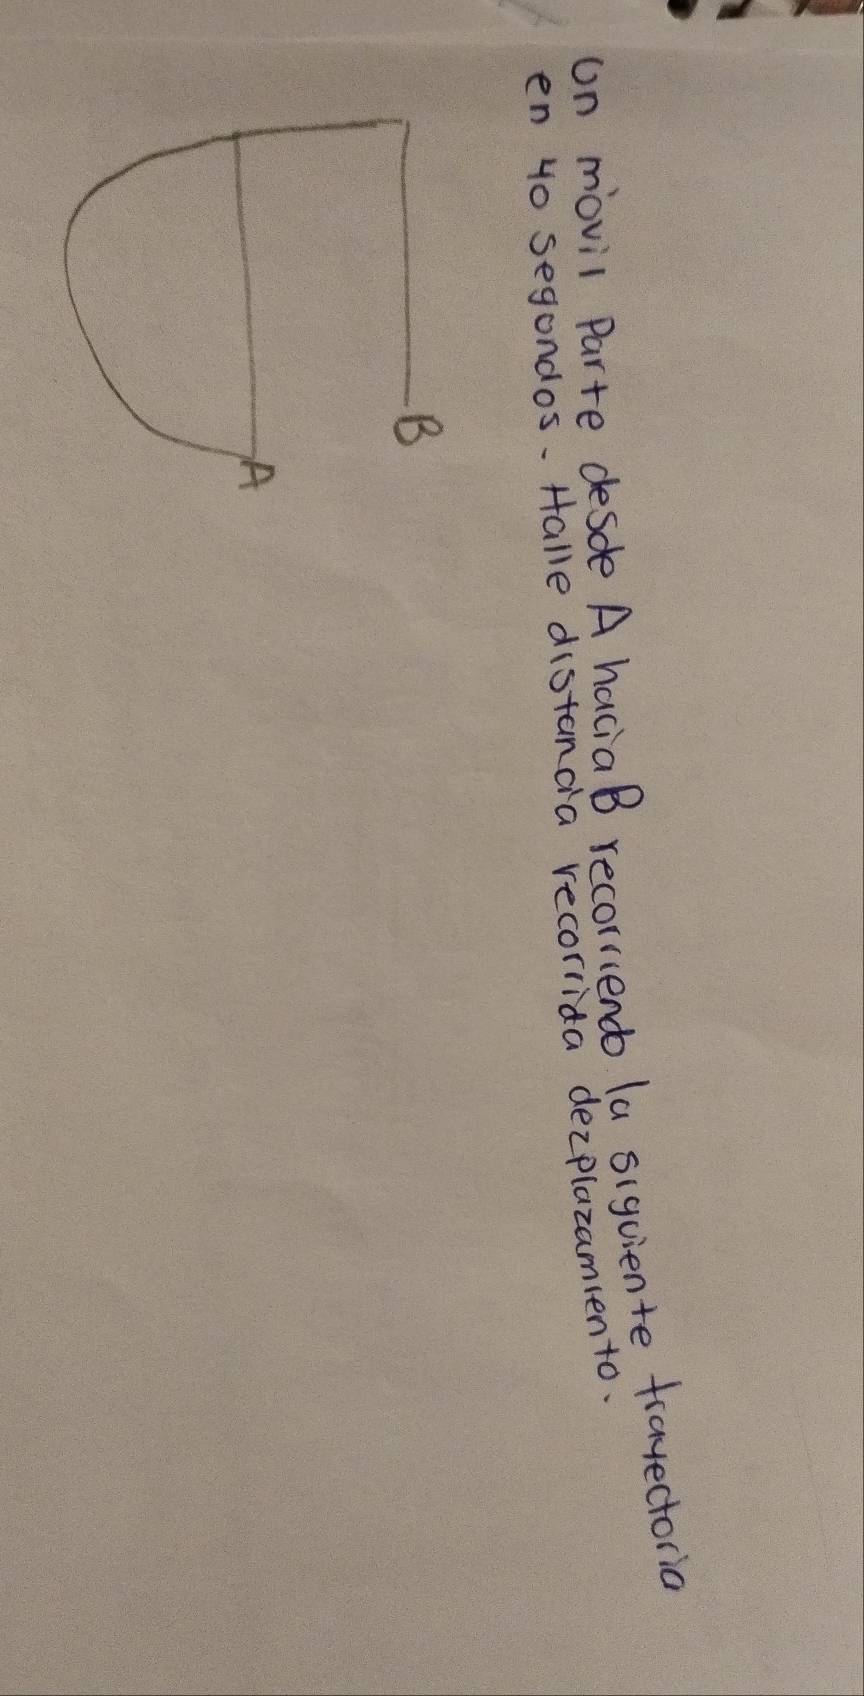 Un móvil Parte desde A hacia B recorriendo la siguiente trayectoria
en 40 segundos. Halle distancia recorrida dezplazamiento.
B
A